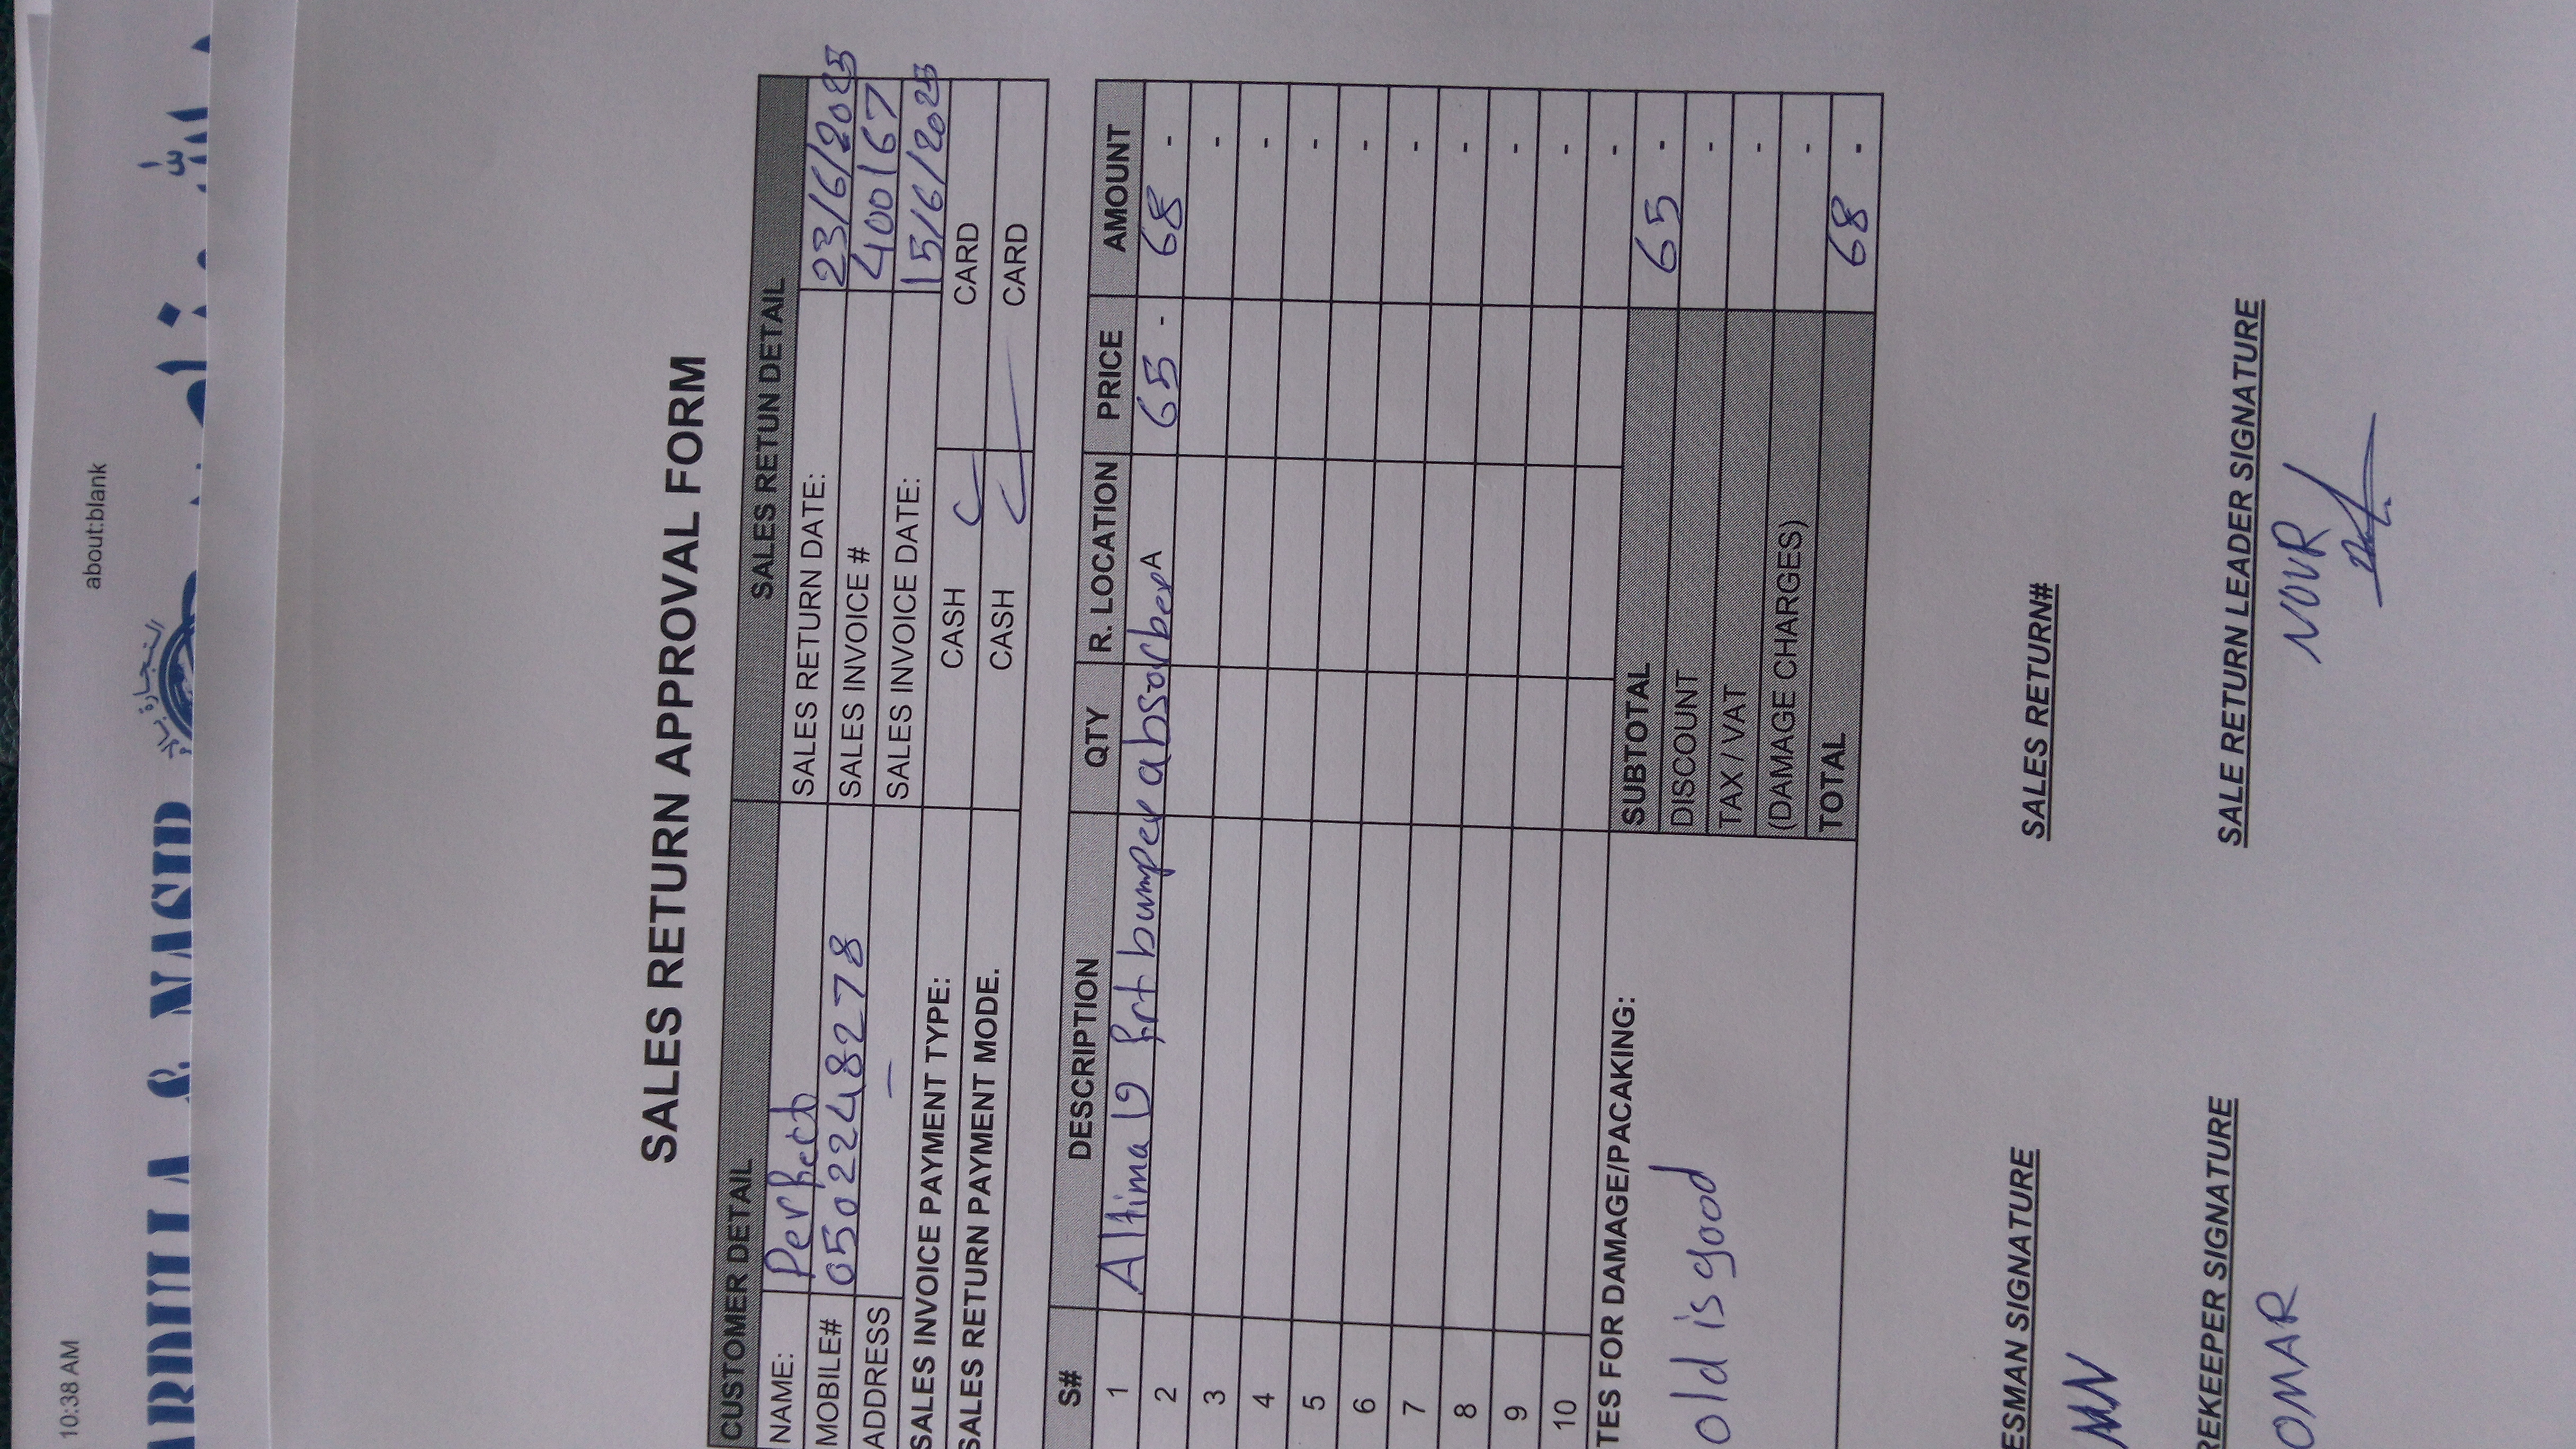 10:38 AM
about:blank
التجارة
ABDULLA & NASIR
SALES RETURN APPROVAL FORM
CUSTOMER DETAIL SALES RETUN DETAIL
NAME: Perfect SALES RETURN DATE: 23/6/2025
MOBILE# 0502248278 SALES INVOICE # 400167
ADDRESS — SALES INVOICE DATE: 15/6/2025
SALES INVOICE PAYMENT TYPE: CASH CARD
SALES RETURN PAYMENT MODE. CASH CARD
S# DESCRIPTION QTY R. LOCATION PRICE AMOUNT
1 Altima 19 frt bumper absorber A 65 - 68 -
2 -
3 -
4 -
5 -
6 -
7 -
8 -
9 -
10 -
TES FOR DAMAGE/PACAKING: SUBTOTAL 65 -
old is good DISCOUNT -
TAX / VAT -
(DAMAGE CHARGES) -
TOTAL 68 -
ESMAN SIGNATURE SALES RETURN#
MN
REKEEPER SIGNATURE SALE RETURN LEADER SIGNATURE
OMAR NOUR